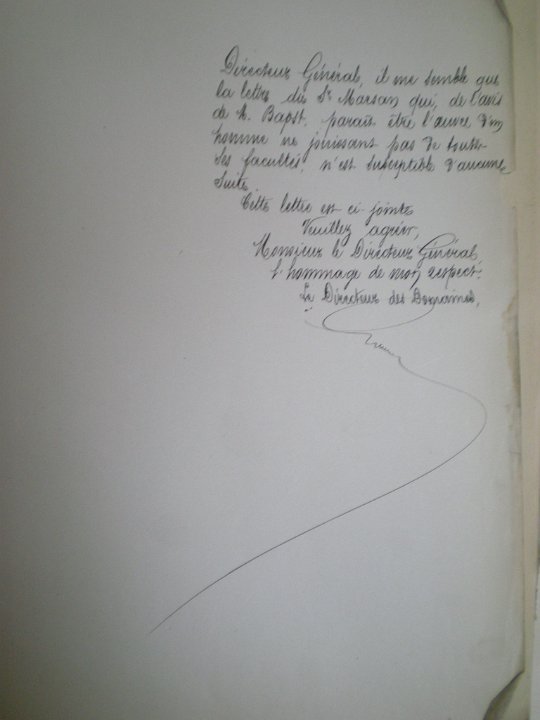 Directeur Général, il me semble que
la lettre du Sr Marsan qui, de l'avis
de M. Bapst, paraît être l'œuvre d'un
homme ne jouissant pas de toutes
ses facultés, n'est susceptible d'aucune
suite.
Cette lettre est ci-jointe
Veuillez agréer,
Monsieur le Directeur Général,
l'hommage de mon respect.
Le Directeur des Domaines,